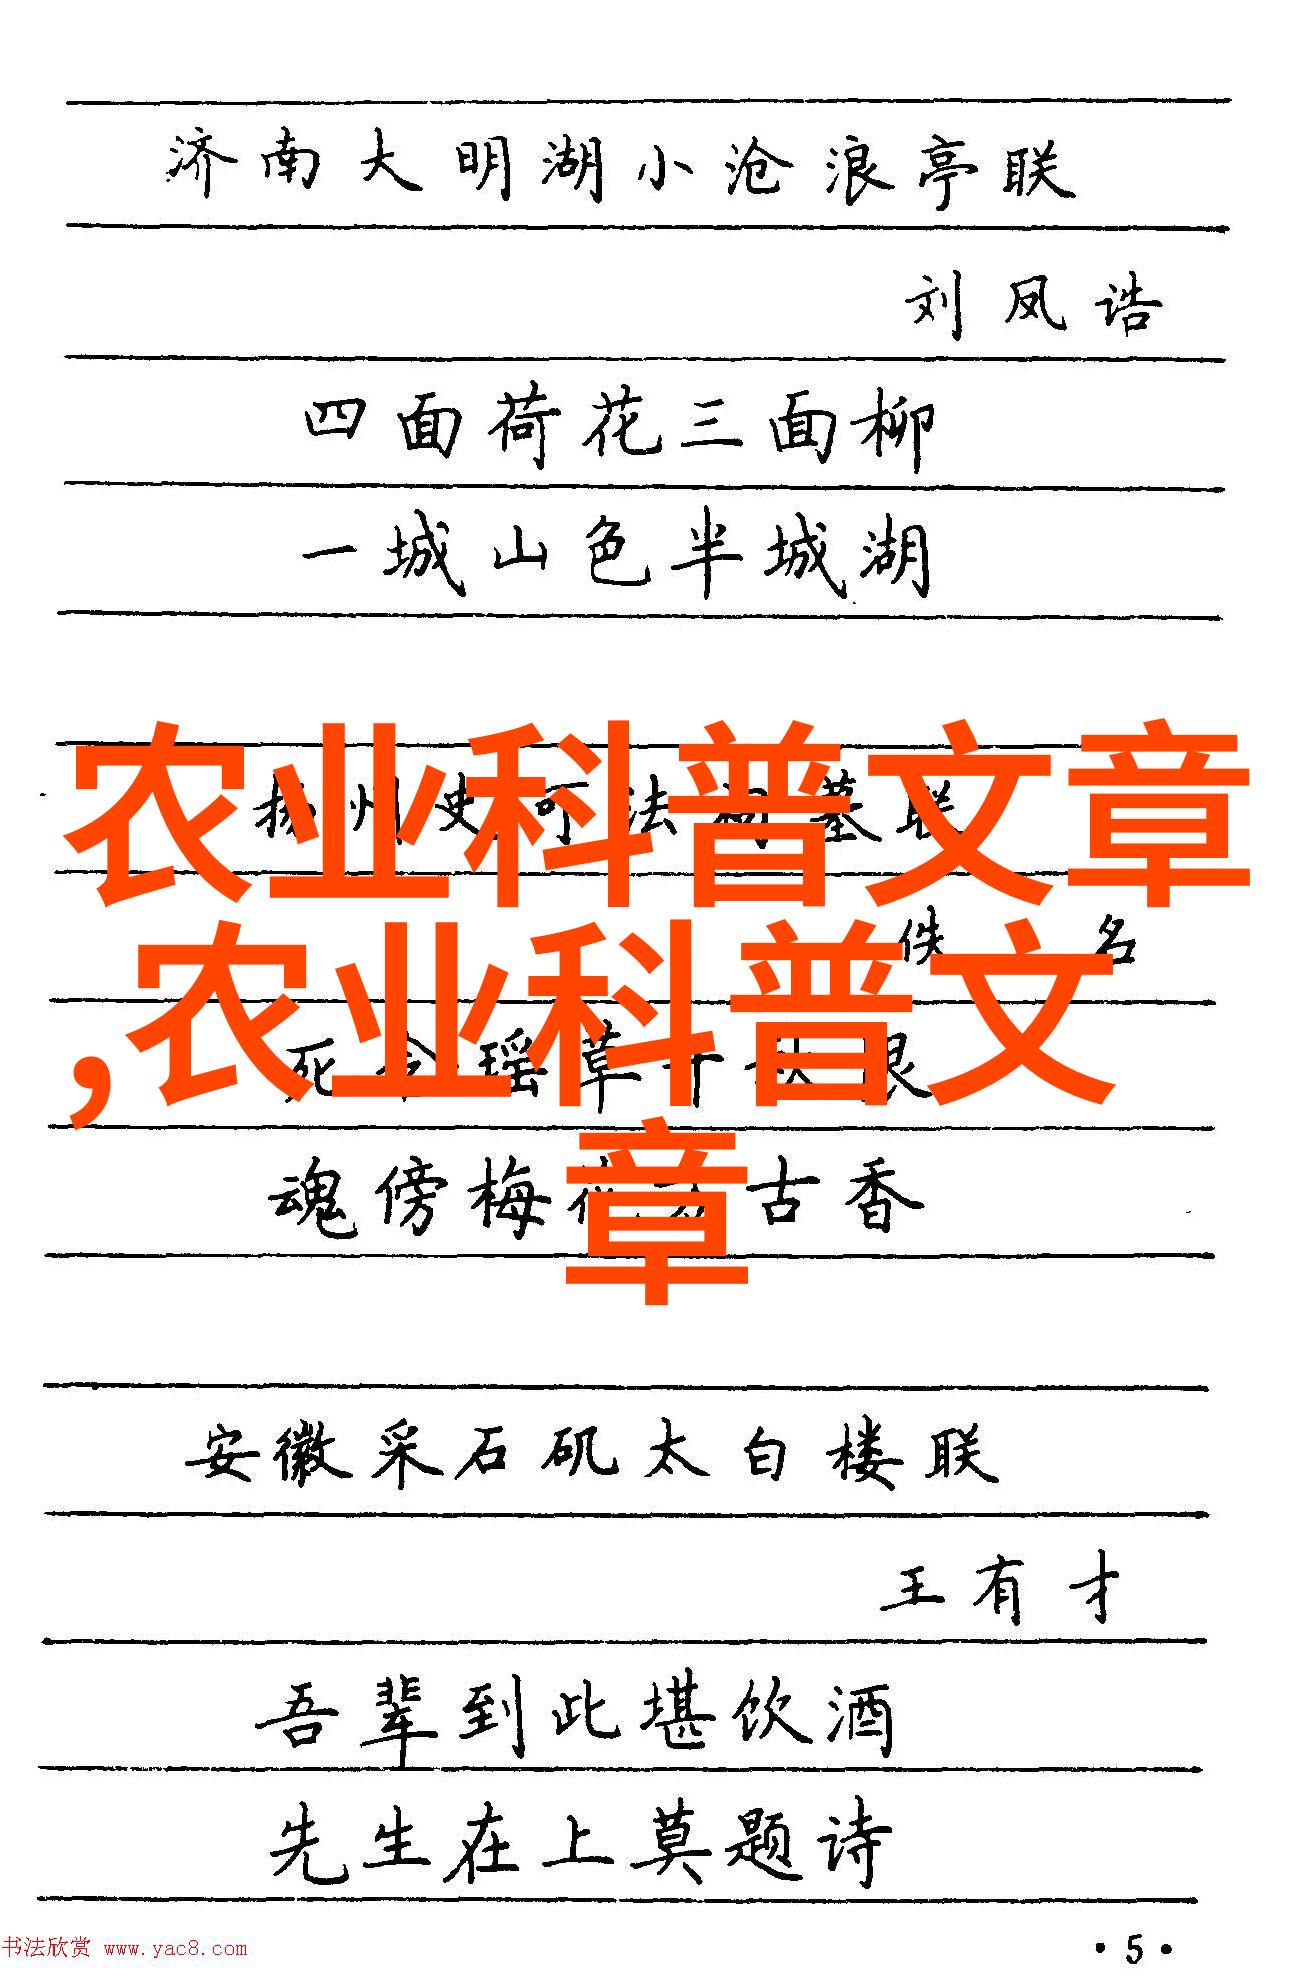 济南大明湖小沧浪亭联
刘凤诰
四面荷花三面柳
一城山色半城湖
农业科普文章
扬州史可法祠墓联
,农业科普文
佚名
瑶草
章
魂傍梅花万古香
安徽采石矶太白楼联
王有才
吾辈到此堪饮酒
先生在上莫题诗
书法欣赏 www.yac8.com
·5·